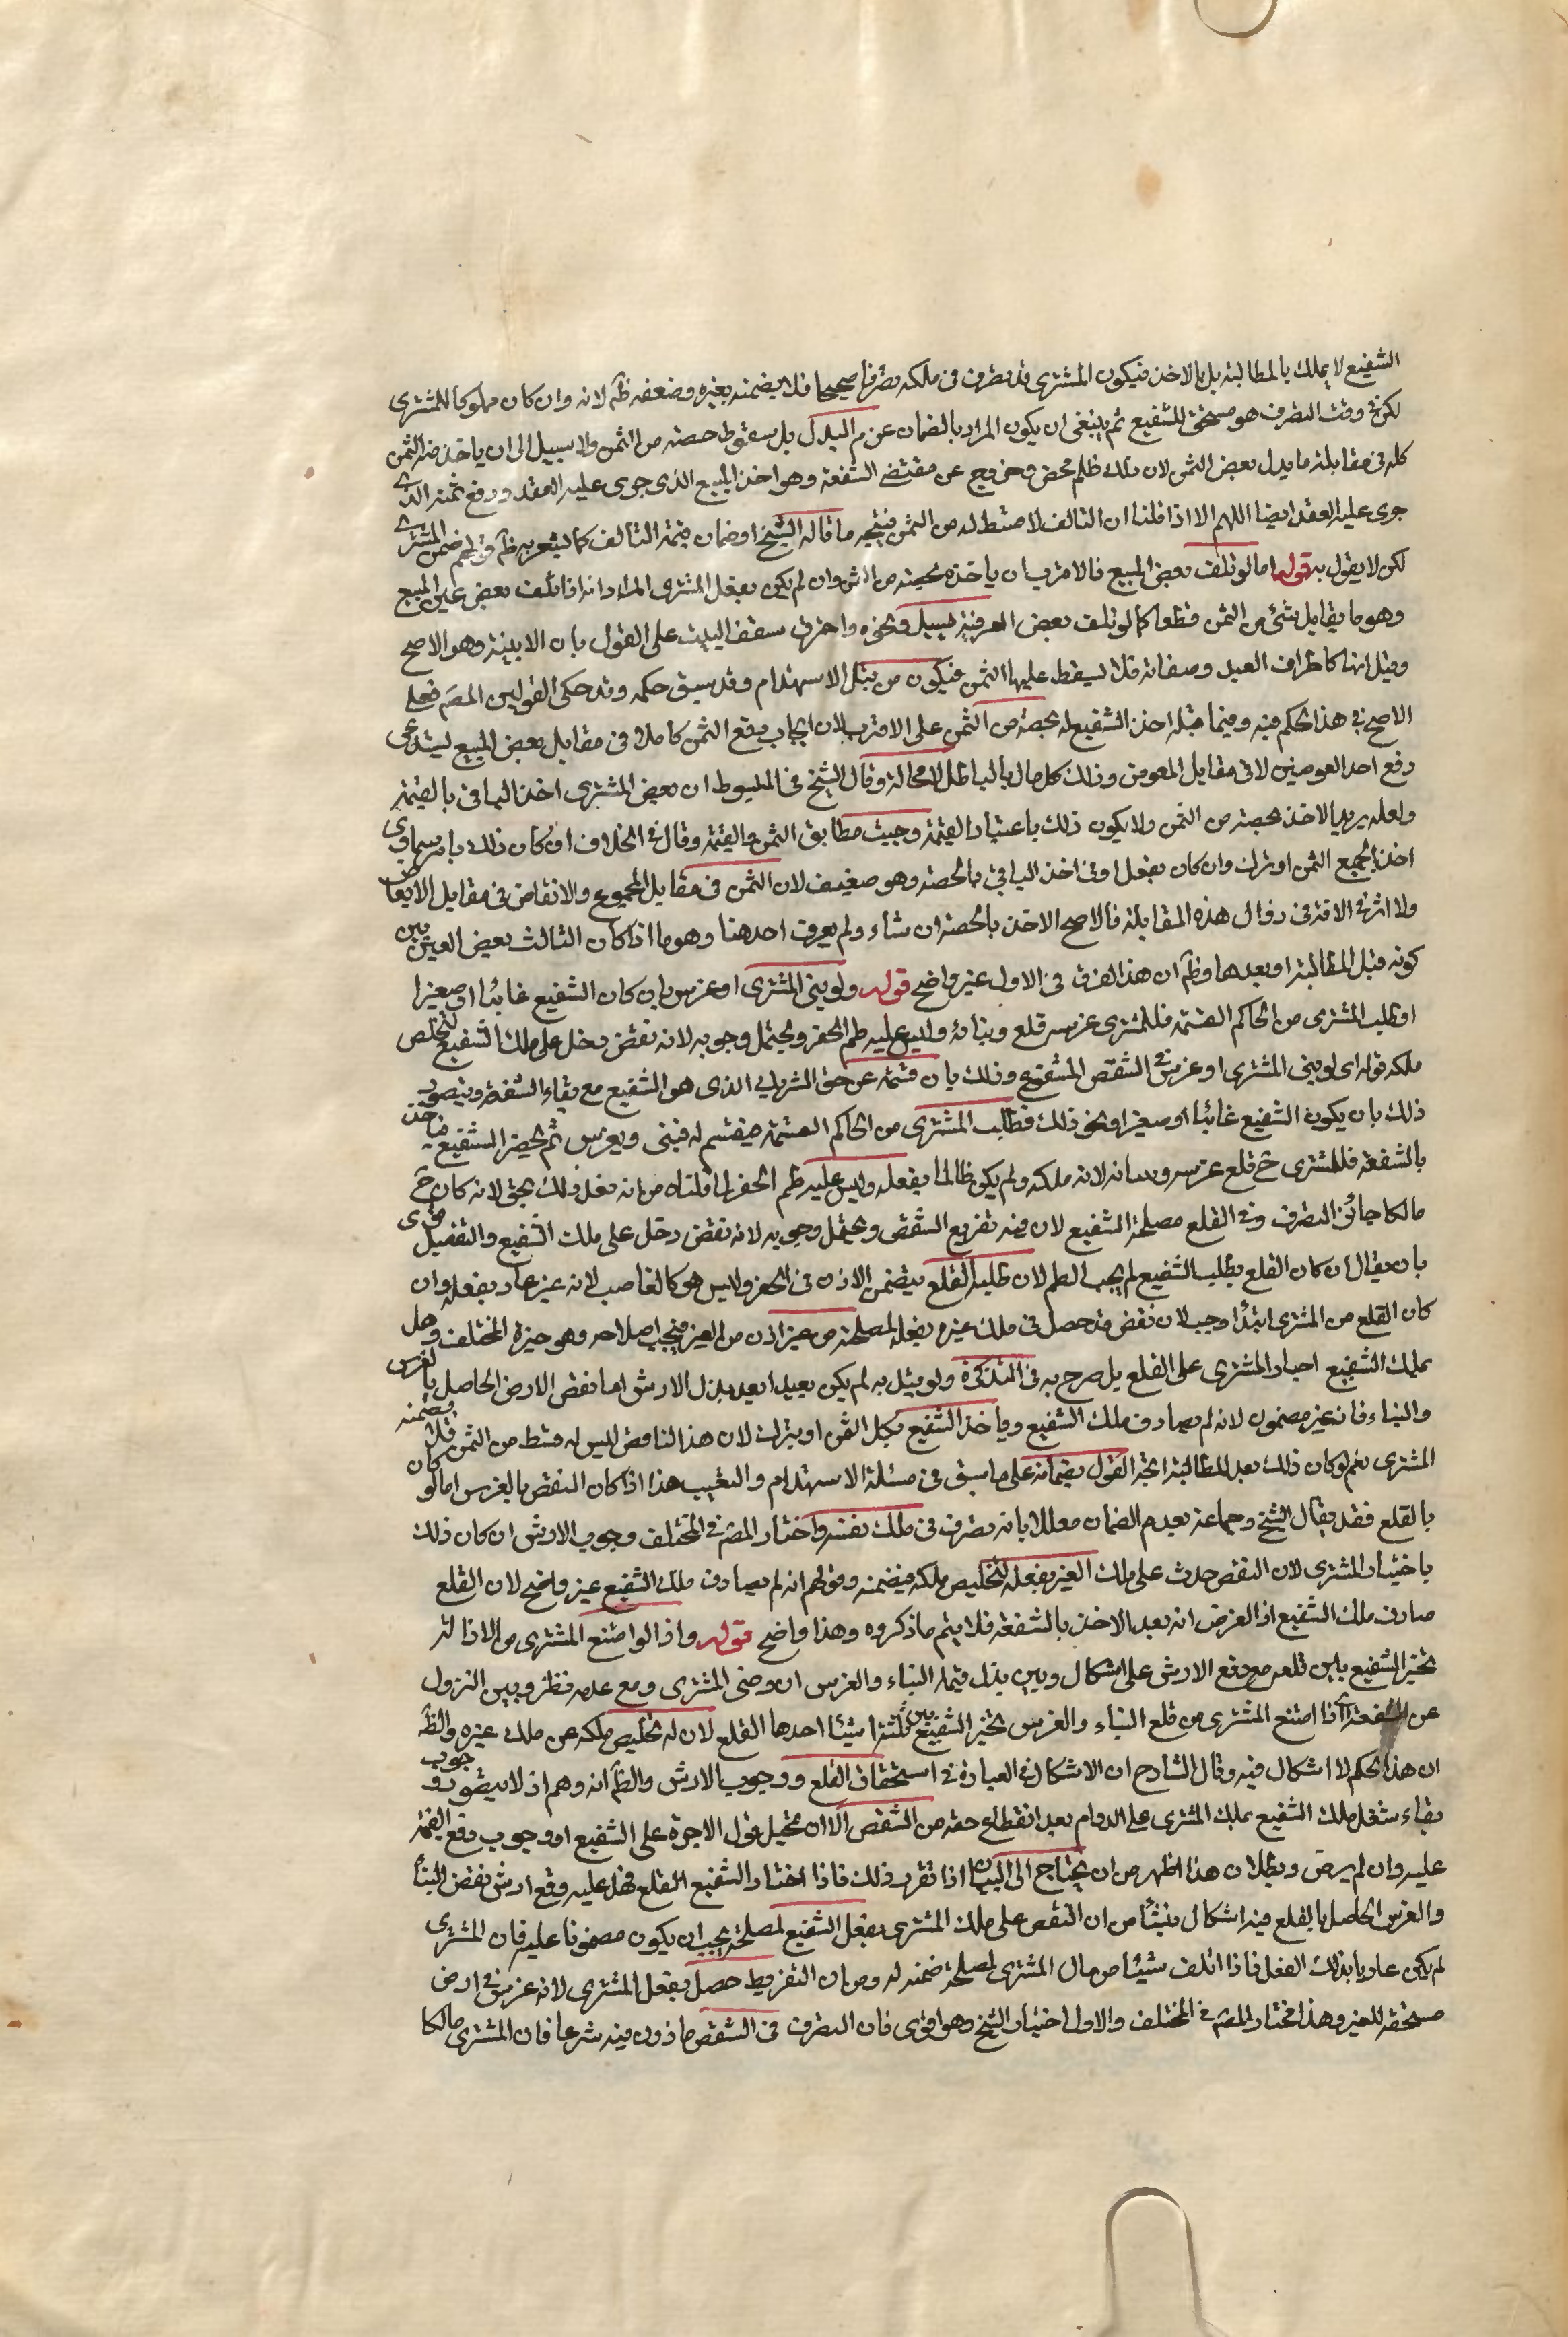 الشفيع لا يملك بالمطالبة بل بالاخذ فيكون المشترى قد تصرف فى ملكه تصرفا صحيحا فلا يضمنه بغيره وضعفه ظ لانه وان كان مملوكا للمشترى
لكن فى وقت التصرف هو مستحق للشفيع ثم ينبغى ان يكون المراد بالضمان عن م البدل بل سقوط حصته من الثمن والا سبيل الى ان ياخذ منه الثمن
كله فى مقابلة ما يدل بعض الثمن لان ذلك ظلم محض وخروج عن مقتضى الشفعة وهو اخذ المبيع الذى جرى عليه العقد ودفع ثمنه الذى
جرى عليه العقد ايضا اللهم الا اذا قلنا ان التالف لا قسط له من الثمن فيتجه ما قاله الشيخ او ضمان قيمة التالف كما يشعر به ظ قولهم ضمن المشترى
لكن لا يقول به قوله اما لو تلف بعض المبيع فالاقرب ان ياخذه بحصته من الثمن وان لم يكن بفعل المشترى المراد انه اذا تلف بعض عين المبيع
وهو ما يقابل بشئ من الثمن قطعا كما لو تلف بعض العرصة بسيل ونحوه واحترق سقف البيت على القول بان الابنية وهو الاصح
وقيل انها كاطراف العبد وصفاته فلا يسقط عليها الثمن فيكون من قبيل الاستهدام وقد سبق حكمه وقد حكى القولين المصَ فعلى
الاصح فى هذا الحكم فيه وفيما قبله اخذ الشفيع له بحصته من الثمن على الاقرب لان ايجاب دفع الثمن كاملا فى مقابل بعض المبيع يستدعى
دفع احد العوضين لا فى مقابل المعوض وذلك اكل مال بالباطل لا محالة وقال الشيخ فى المبسوط ان بعض المشترى اخذ الباقى بالقيمة
ولعله يريد الاخذ بحصته من الثمن ولا يكون ذلك باعتبار القيمة وحيث مطابق الثمن والقيمة وقال فى الخلاف ان كان ذلك بامر سماوى
اخذ بجميع الثمن او ترك وان كان بفعل اوفى اخذ الباقى بالحصة وهو ضعيف لان الثمن فى مقابل المجموع والانقاض فى مقابل الابعاض
ولا اثر فى الافة فى زوال هذه المقابلة فالاصح الاخذ بالحصة ان شاء ولم يعرف احد هنا وهو ما اذا كان التالف بعض العين بين
كونه قبل المطالبة او بعدها وظ ان هذا الفرق فى الاول غير واضح قوله ولو بنى المشترى او غرس بان كان الشفيع غائبا او صغيرا
او طلب المشترى من الحاكم القسمة فللمشترى غرسه قلع وبنائه وليس عليه طم الحفر ويحتمل وجوبه لانه نقض دخل على ملك الشفيع لتخلص
ملكه قوله اى لو بنى المشترى او غرس فى الشقص المشفوع وذلك بان قسمته عن حق الشريك الذى هو الشفيع مع بقاء الشفعة ويتصور
ذلك بان يكون الشفيع غائبا او صغيرا ونحو ذلك فطلب المشترى من الحاكم القسمة فيقسم له فيبنى ويغرس ثم يحضر الشفيع فياخذ
بالشفعة فللمشترى ح قلع غرسه وبنائه لانه ملكه ولم يكن ظالما بفعله وليس عليه طم الحفر لما قلناه من انه فعل ذلك بحق لانه كان ح
مالكا جائز التصرف وفى القلع مصلحة الشفيع لان فيه تفريع الشقص ويحتمل وجوبه لانه نقض دخل على ملك الشفيع والتفصيل قوى
بان يقال ان كان القلع بطلب الشفيع لم يجب الطم لان طلبه القلع يتضمن الاذن فى الحفر وليس هو كالغاصب لانه غير عاد بفعله وان
كان القلع من المشترى ابتدأ وجب لان نقض قد حصل فى ملك غيره بفعله لمصلحته من غير اذن من الغير فيجب اصلاحه وهو خيرة المختلف وهل
يملك الشفيع اجبار المشترى على القلع بل صرح به فى التذكرة ولو قيل به لم يكن بعيدا بعد بذل الارش اما نقض الارض الحاصل بالغرس
والبناء فانه غير مضمون لانه لم يصادف ملك الشفيع وياخذ الشفيع بكل الثمن او يترك لان هذا الناقص ليس له قسط من الثمن فلا يضمنه
المشترى نعم لو كان ذلك بعد المطالبة اتجه القول بضمانه على ما سبق فى مسئلة الاستهدام والتعيب هذا اذا كان النقض بالغرس اما لو كان
بالقلع فقد يقال الشيخ وجماعة بعدم الضمان معللا بانه تصرف فى ملك نفسه واختار المصَ فى المختلف وجوب الارش ان كان ذلك
باختيار المشترى لان النقص حدث على ملك الغير بفعله لتخليص ملكه فيضمنه وقولهم انه لم يصادف ملك الشفيع غير واضح لان القلع
صادف ملك الشفيع اذ الغرض انه بعد الاخذ بالشفعة فلا يتم ما ذكروه وهذا واضح قوله واذا لو امتنع المشترى من الازالة
تخير الشفيع بين قلعه مع دفع الارش على اشكال وبين بذل قيمة البناء والغرس ان رضى المشترى ومع عدمه نظر وبين النزول
عن الشفعة اذا امتنع المشترى من قلع البناء والغرس تخير الشفيع بين ثلثة اشياء احدها القلع لان له تخليص ملكه عن ملك غيره والظ
ان هذا الحكم لا اشكال فيه وقال الشارح ان الاشكال فى العبارة فى استحقاق القلع ووجوب الارش والظ انه وهم اذ لا يتصور وجوب
بقاء شغل ملك الشفيع بملك المشترى على الدوام بعد انقطاع حقه من الشقص الا ان يتخيل قول الاجرة على الشفيع او وجوب دفع القيمة
عليه وان لم يرض وبطلان هذا اظهر من ان يحتاج الى البيان اذا تقرر ذلك فاذا اختار الشفيع القلع فهل عليه دفع ارش نقض البناء
والغرس الحاصل بالقلع فيه اشكال ينشأ من ان النقص على ملك المشترى بفعل الشفيع لمصلحته يجب ان يكون مضمونا عليه فان المشترى
لم يكن عاديا بذلك الفعل فاذا اتلف شيئا من مال المشترى لمصلحته ضمنه له ومن ان التفريط حصل بفعل المشترى لانه غرس فى ارض
مستحقة للغير وهذا مختار المصَ فى المختلف والاول اختيار الشيخ وهو اقوى فان التصرف فى الشقص ماذون فيه شرعا فان المشترى مالكا